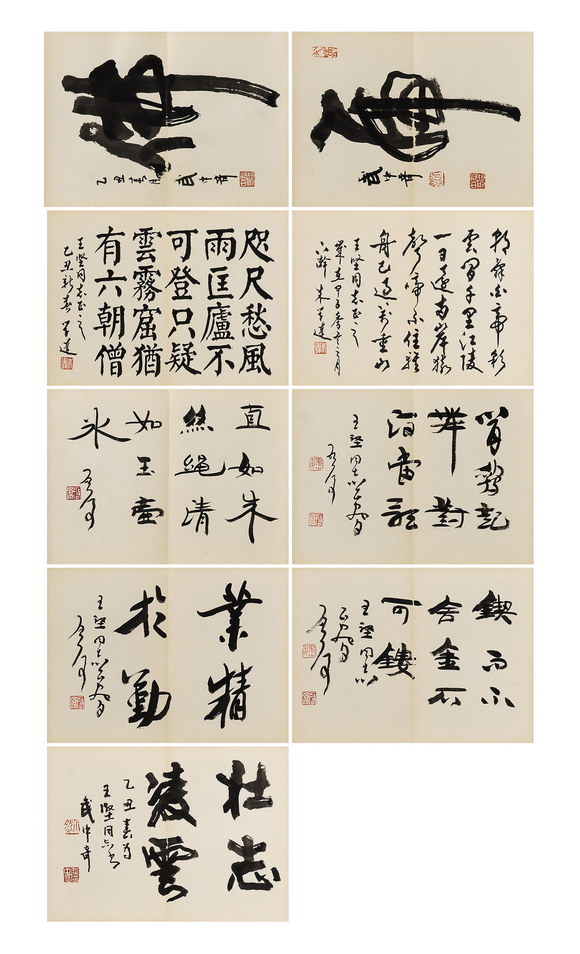 乙丑
武中奇
武中奇
咫尺愁風
雨匡廬不
可登只疑
雲霧窟猶
有六朝僧
王堅同志正之
乙丑新春
朝辭白帝彩
雲間千里江陵
一日還兩岸猿
聲啼不住輕
舟已過萬重山
王堅同志正之
直如朱
絲繩清
如玉壺
冰
聞雞起
舞對
酒當歌
王堅同志
業精
於勤
王堅同志
鍥而不
舍金石
可鏤
王堅同志
壯志
凌雲
乙丑春為
王堅同志書
武中奇